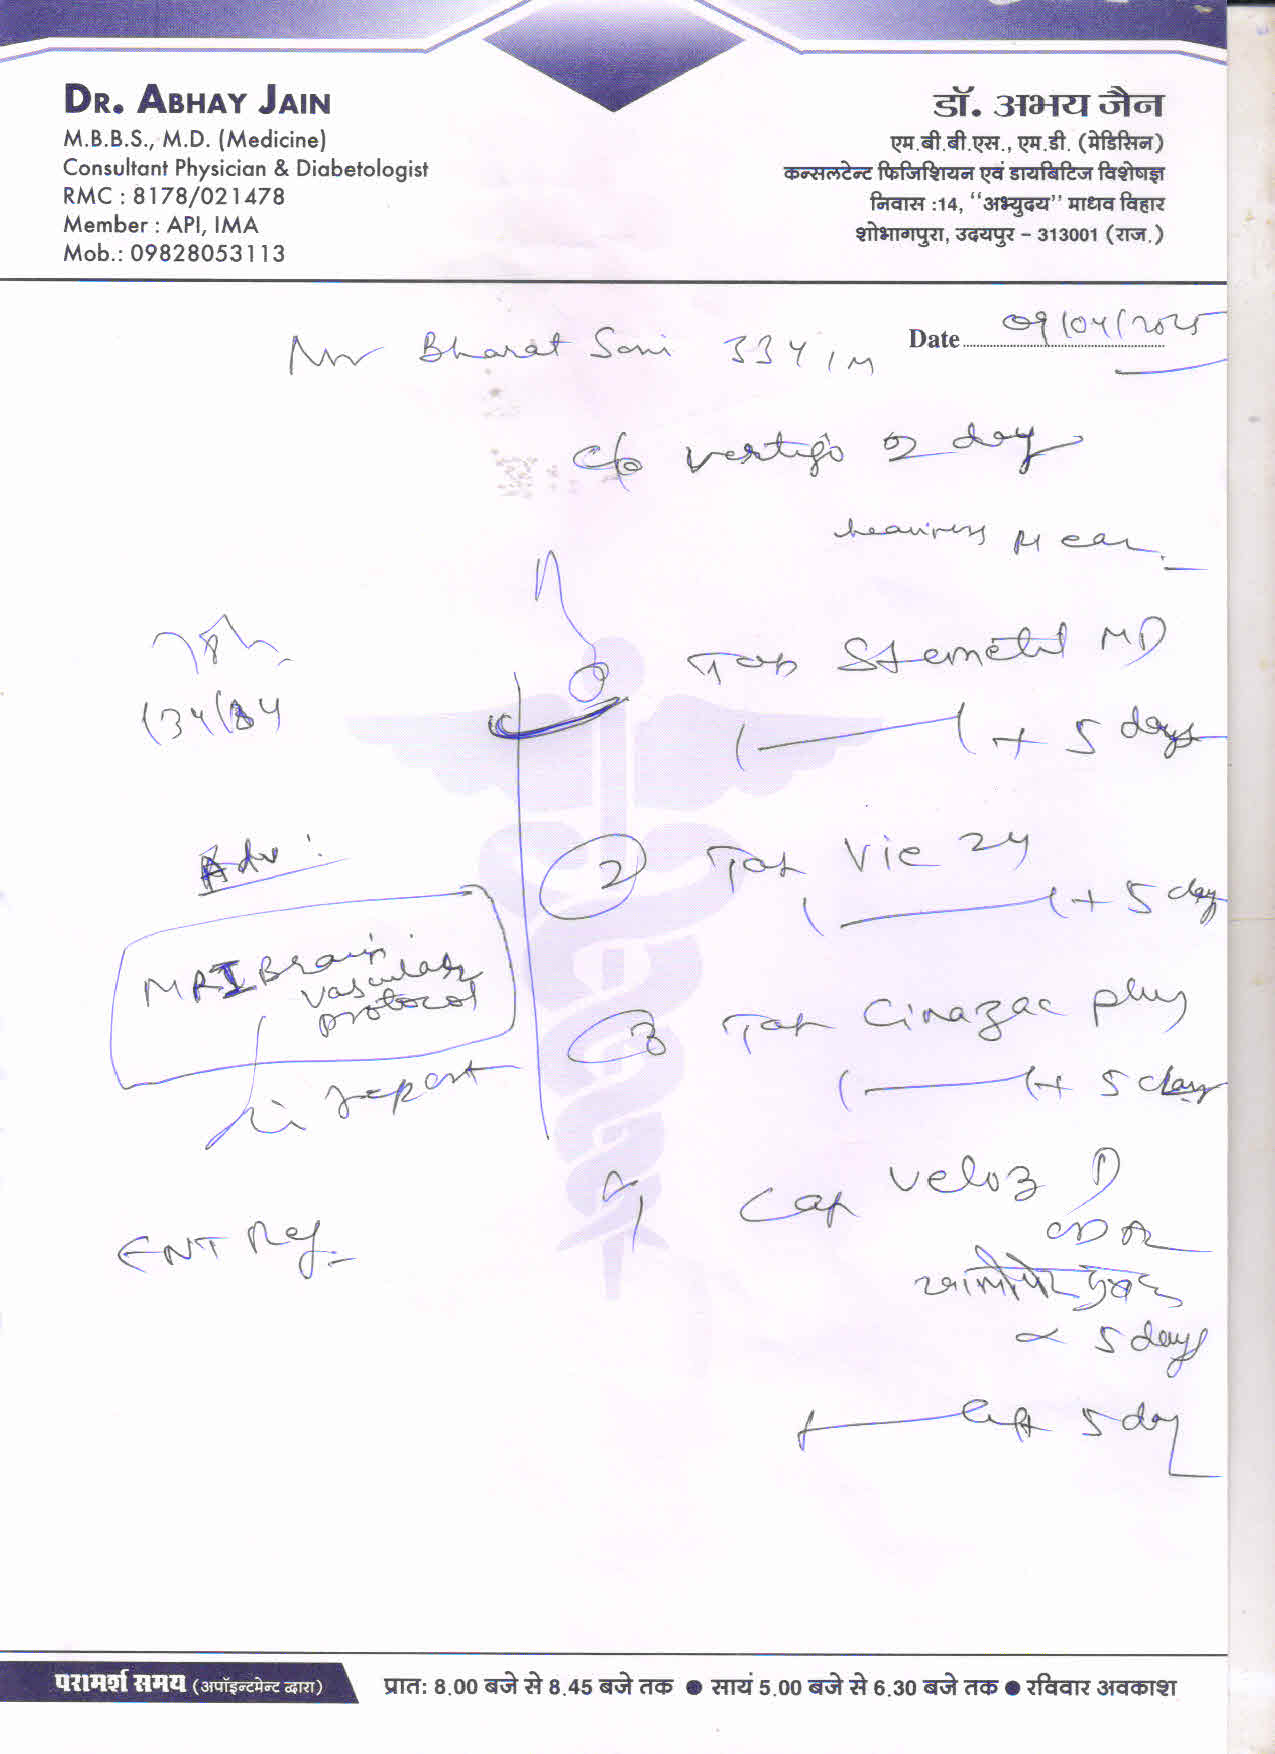 DR. ABHAY JAIN
M.B.B.S., M.D. (Medicine)
Consultant Physician & Diabetologist
RMC : 8178/021478
Member : API, IMA
Mob.: 09828053113
डॉ. अभय जैन
एम.बी.बी.एस., एम.डी. (मेडिसिन)
कन्सलटेन्ट फिजिशियन एवं डायबिटिज विशेषज्ञ
निवास :14, “अभ्युदय” माधव विहार
शोभागपुरा, उदयपुर – 313001 (राज.)
Date 09/04/2025
Mr Bharat Soni 33y/M
c/o vertigo 2 day
heaviness ear
Tab Stemetil MD
1 — 1 + 5 days
134/84
Adv:
2 Tab Vie 24
1 — 1 + 5 day
MRI Brain
vascular
protocol
report
3 Tab Cinazac plus
1 — 1 + 5 days
4 Cap Veloz D
ENT Ref
5 days
left 5 day
परामर्श समय (अपॉइन्टमेन्ट द्वारा)
प्रात: 8.00 बजे से 8.45 बजे तक ● सायं 5.00 बजे से 6.30 बजे तक ● रविवार अवकाश